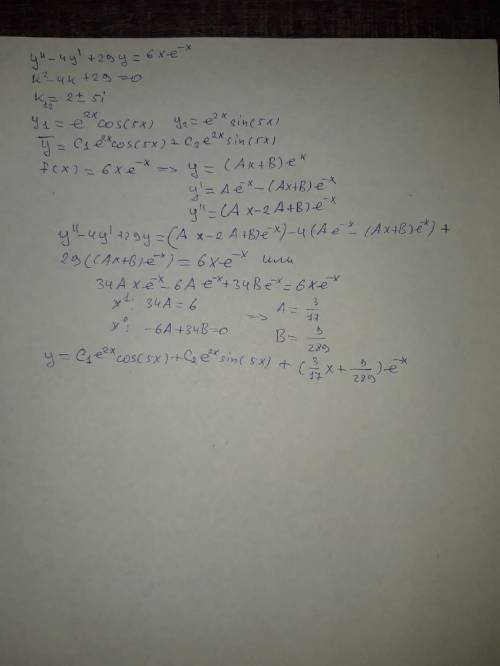 y'' - 4y' + 29y = 6x·e^{-x}
k² - 4k + 29 = 0
k_{1,2} = 2 ± 5i
y₁ = e^{2x} cos(5x) y₂ = e^{2x} sin(5x)
y̅ = C₁e^{2x} cos(5x) + C₂e^{2x} sin(5x)
f(x) = 6x·e^{-x} => y = (Ax+B)e^{x}
y' = Ae^{-x} - (Ax+B)e^{-x}
y'' = (Ax - 2A + B)e^{-x}
y'' - 4y' + 29y = (Ax - 2A + B)e^{-x}) - 4(Ae^{-x} - (Ax+B)e^{-x}) +
29((Ax+B)e^{-x}) = 6x·e^{-x} или
34Ax·e^{-x} - 6A·e^{-x} + 34B·e^{-x} = 6x·e^{-x}
x¹: 34A = 6 => A = 3/17
x⁰: -6A + 34B = 0 B = 9/289
y = C₁e^{2x} cos(5x) + C₂e^{2x} sin(5x) + (3/17 x + 9/289)·e^{-x}